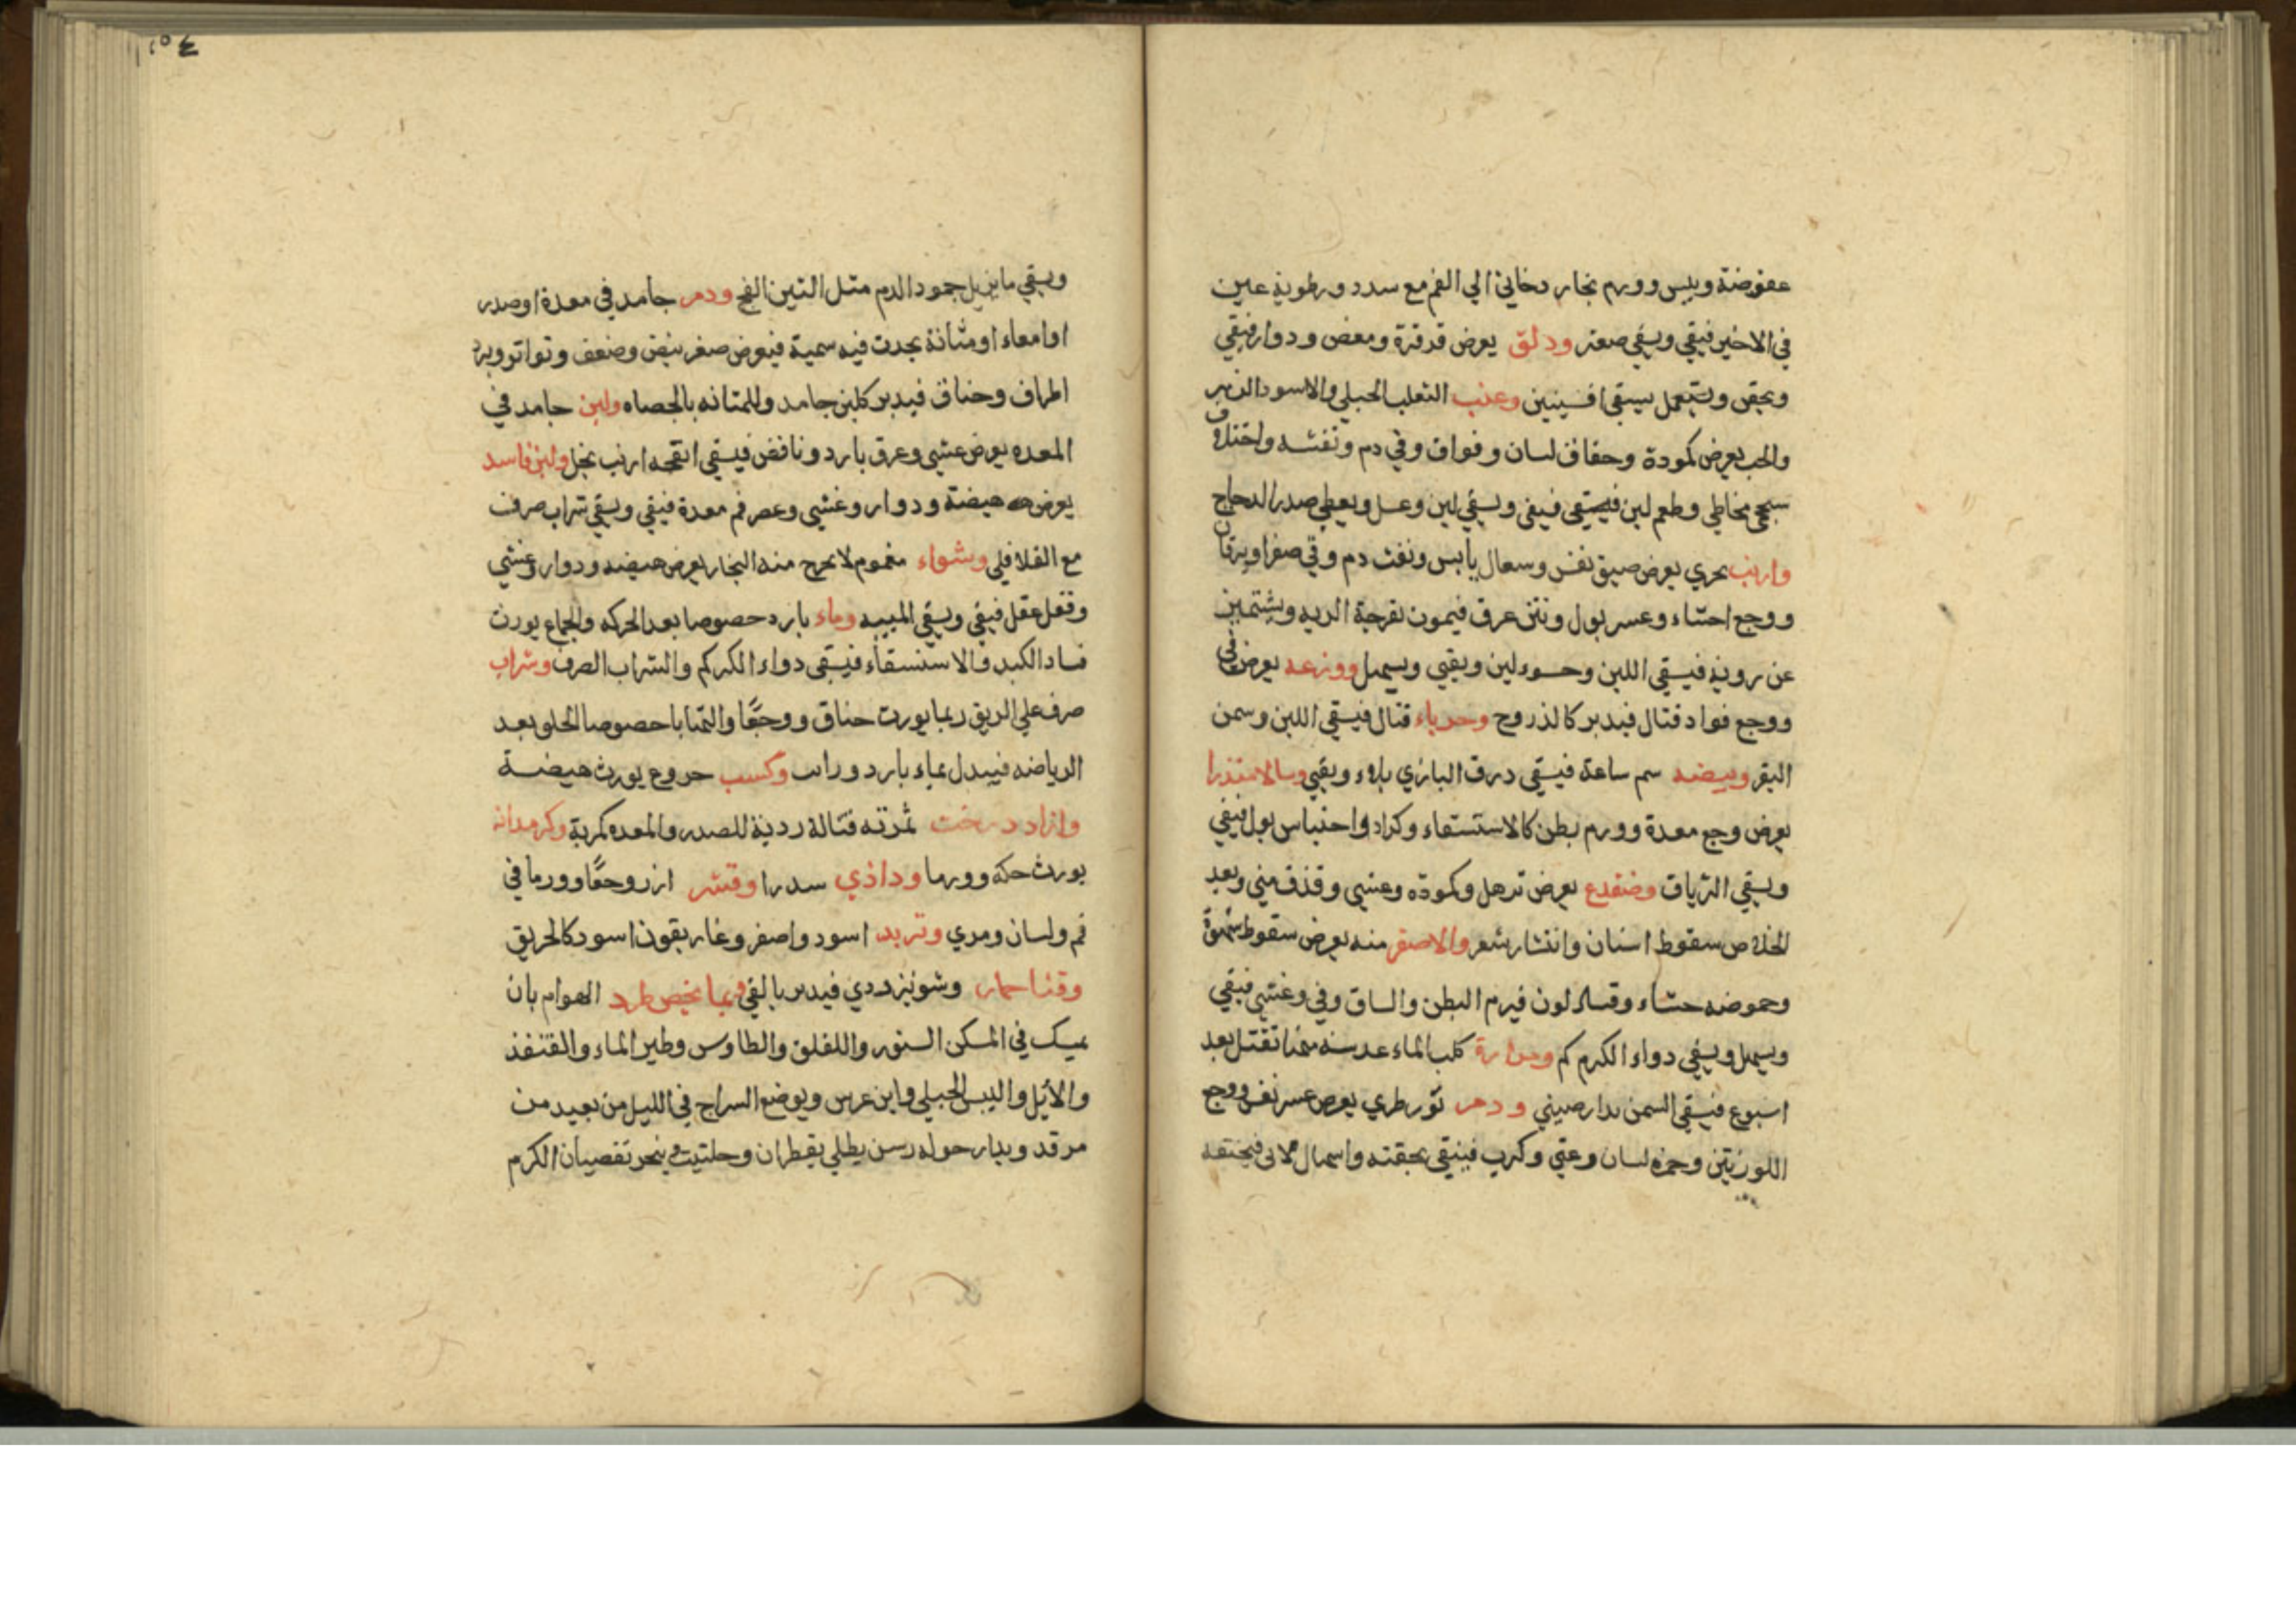 عفوضة ويبس وورم بخار دخاني الي الفم مع سدد ورطوبة عين
في الاخير فيقي ويسقي صعتر ودلق يعرض قرقرة ومغص ودوار فيقي
ويحقن ويستعمل يسقي افسينين وعنب الثعلب الجبلي والاسود الزهر
والحب يعرض كمودة وجفاف لسان وفواق وقي دم ونفثه واختلاف
سحجي مخاطي وطعم لبن فيقي ويسقي لبن وعسل ويعطي صدر الدجاج
وارنب بحري يعرض ضيق نفس وسعال يابس ونفث دم وقي صفرا ويرقان
ووجع احشاء وعسر بول ونتن عرق فيموت بقرحة الريه ويشتمئز
عن رويته فيسقي اللبن وحسو لين ويقيي ويسهل ووزغه يعرض قي
ووجع فواد قتال فيدبر كالذروح وحرباء قتال فيسقي اللبن وسمن
البقر وبيضه سم ساعة فيسقي درق البازي بماء ويقيي وسالامندرا
يعرض وجع معدة وورم بطن كالاستسقاء وكزاز واحتباس بول فيقي
ويسقي الترياق وضفدع يعرض ترهل وكمودة وغشي وقذف مني وبعد
الخلاص سقوط اسنان وانتثار شعر والاصفر منه يعرض سقوط شهوة
وحموضه جشاء وفساد لون فيرم البطن والساق وقي وغشي فيقي
ويسهل ويسقي دواء الكركم ومرارة كلب الماء عدسة منها تقتل بعد
اسبوع فيسقي السمن بدارصيني ودم ثور طري يعرض عسر نفس ووجع
اللوزتين وحمرة لسان وغثي وكرب فينقي بحقنة واسهال لا قي فيختنق
ويسقي ما يزيل جمود الدم مثل التين الفج ودم جامد في معدة او صدر
او امعاء او مثانة يحدث فيه سمية فيعرض صغر نبض وضعف وتواتر وبرد
اطراف وخناق فيدبر كلبن جامد وللمثانه بالحصاه ولبن جامد في
المعده يعرض غشي وعرق بارد ونافض فيسقي انفحه ارنب بخل ولبن فاسد
يعرض هيضة ودوار وغشي وعصر فم معدة فيقي ويسقي شراب صرف
مع الفلافلي وشواء مغموم لا يخرج منه البخار يعرض هيضه ودوار وغشي
وقفل عقل فيقي ويسقي الميبه وماء بارد خصوصا بعد الحركه والجماع يورث
فساد الكبد والاستسقاء فيسقي دواء الكركم والشراب الصرف وشراب
صرف علي الريق ربما يورث خناق ووجعًا والتهابا خصوصا الحلو بعد
الرياضه فيبدل بماء بارد وراىب وكسب خروع يورث هيضة
وازاد درخت ثمرته قتالة ردية للصدر والمعده مكربة وكرمدانه
يورث حكه وورما وداذي سدرا وقشر ارز وجعًا وورما في
فم ولسان ومري وتربد اسود واصفر وغاريقون اسود كالخربق
وقثا حمار وشونيز ردي فيدبر بالقي فيما يخص طرد الهوام بان
يمسك في المسكن السنور واللقلق والطاوس وطير الماء والقنفذ
والايّل واليبس الجبلي وابن عرس ويوضع السراج في الليل من بعيد من
مرقد ويدار حوله رسن يطلي بقطران وحلتيت ويبخر بقضبان الكرم